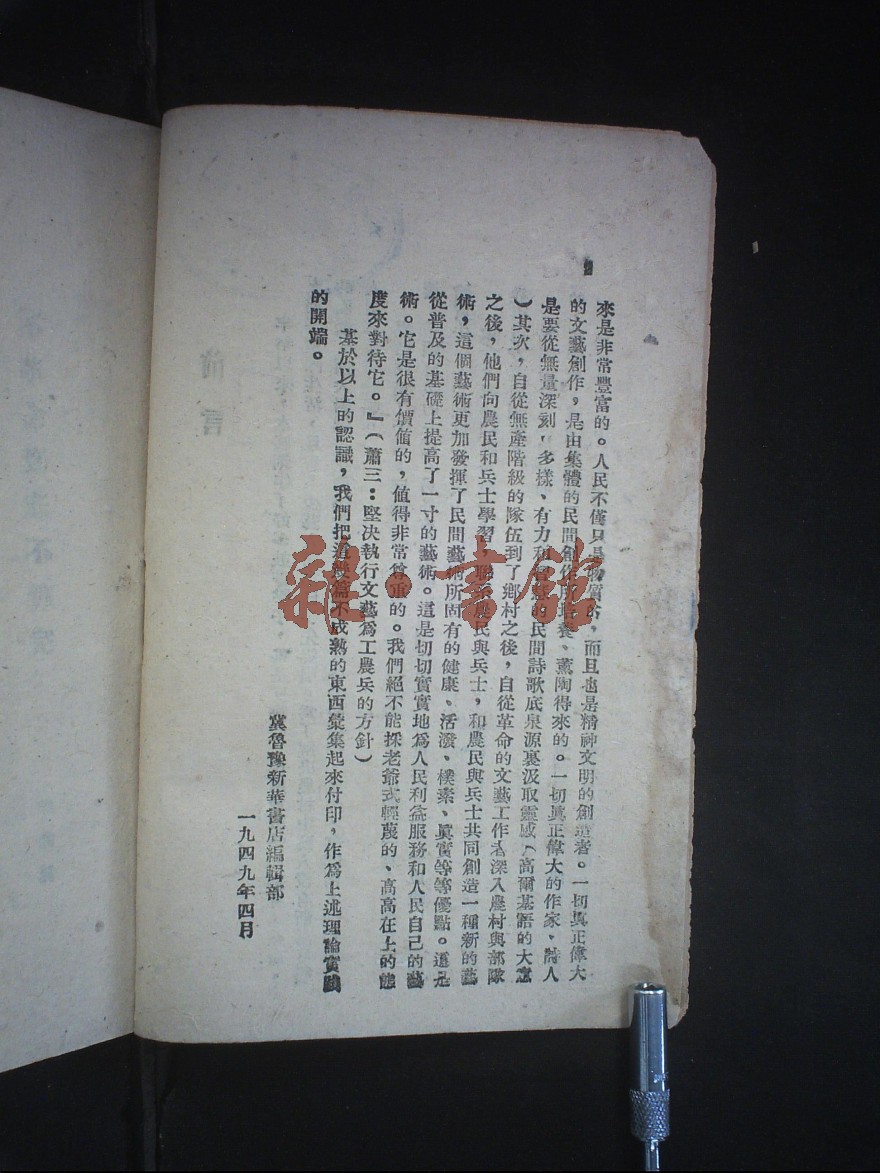 來是非常豐富的。人民不僅只是物質的，而且也是精神文明的創造者。一切眞正偉大
的文藝創作，是由集體的民間創作所培養、薰陶得來的。一切眞正偉大的作家，詩人
是要從無量深刻，多樣、有力和智慧的民間詩歌底泉源裏汲取靈感（高爾基語的大意
）其次，自從無產階級的隊伍到了鄉村之後，自從革命的文藝工作者深入農村與部隊
之後，他們向農民和兵士學習，聯系農民與兵士，和農民與兵士共同創造一種新的藝
術，這個藝術更加發揮了民間藝術所固有的健康、活潑、樸素、眞實等等優點。這是
從普及的基礎上提高了一寸的藝術。這是切切實實地爲人民利益服務和人民自己的藝
術。它是很有價値的，値得非常尊重的。我們絕不能採老爺式輕蔑的、高高在上的態
度來對待它。』（蕭三：堅决執行文藝爲工農兵的方針）
基於以上的認識，我們把這幾篇不成熟的東西彙集起來付印，作爲上述理論實踐
的開端。
冀魯豫新華書店編輯部
一九四九年四月
前言
雜·書館